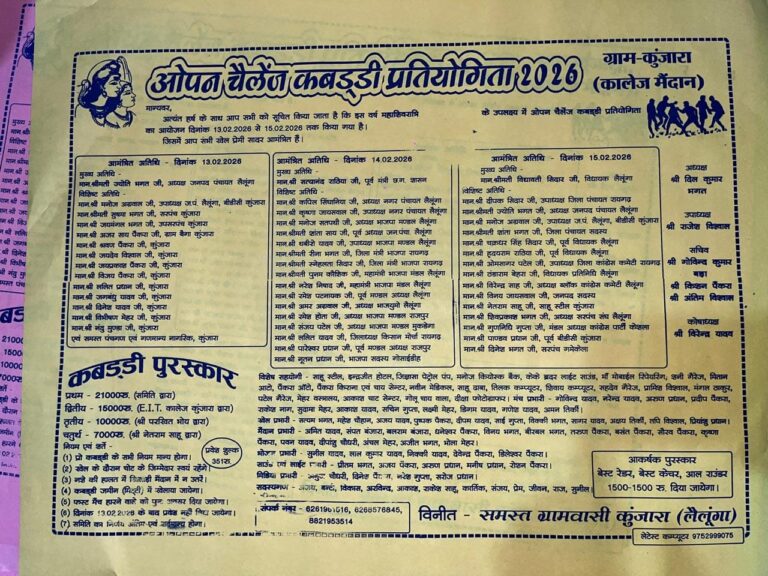 ओपन चैलेंज कबड्डी प्रतियोगिता 2026
ग्राम-कुंजारा
(कालेज मैदान)
मान्यवर,
अत्यंत हर्ष के साथ आप सभी को सूचित किया जाता है कि इस वर्ष महाशिवरात्रि के उपलक्ष्य में ओपन चैलेंज कबड्डी प्रतियोगिता
का आयोजन दिनांक 13.02.2026 से 15.02.2026 तक किया गया है।
जिसमें आप सभी खेल प्रेमी सादर आमंत्रित हैं।
आमंत्रित अतिथि - दिनांक 13.02.2026
मुख्य अतिथि -
मान.श्रीमती ज्योति भगत जी, अध्यक्ष जनपद पंचायत लैलूंगा
विशिष्ट अतिथि -
मान.श्री मनोज अग्रवाल जी, उपाध्यक्ष ज.पं. लैलूंगा, बीडीसी कुंजारा
मान.श्रीमती सुषमा भगत जी, सरपंच कुंजारा
मान.श्री जयमंगल भगत जी, उपसरपंच कुंजारा
मान.श्री अजर साय पैंकरा जी, ग्राम बैगा कुंजारा
मान.श्री श्रवण पैंकरा जी, कुंजारा
मान.श्री जयदेव विश्वाल जी, कुंजारा
मान.श्री जयप्रकाश पैंकरा जी, कुंजारा
मान.श्री विजय पैंकरा जी, कुंजारा
मान.श्री ललित प्रधान जी, कुंजारा
मान.श्री जगबंधु यादव जी, कुंजारा
मान.श्री दिनेश यादव जी, कुंजारा
मान.श्री विभीषण मेहर जी, कुंजारा
मान.श्री मंदु गुप्ता जी, कुंजारा
एवं समस्त पंचगण एवं गणमान्य नागरिक, कुंजारा
आमंत्रित अतिथि - दिनांक 14.02.2026
मुख्य अतिथि -
मान.श्री सत्यानंद राठिया जी, पूर्व मंत्री छ.ग. शासन
विशिष्ट अतिथि -
मान.श्री कपिल सिंघानिया जी, अध्यक्ष नगर पंचायत लैलूंगा
मान.श्री कृष्णा जायसवाल जी, उपाध्यक्ष नगर पंचायत लैलूंगा
मान.श्री मनोज सतपथी जी, अध्यक्ष भाजपा मण्डल लैलूंगा
मान.श्रीमती शांता साय जी, पूर्व अध्यक्ष जन.पंचा. लैलूंगा
मान.श्रीमती रीना भगत जी, जिला मंत्री भाजपा रायगढ़
मान.श्रीमती स्नेहलता सिदार जी, जिला मंत्री भाजपा रायगढ़
मान.श्रीमती पुनाम कौशिक जी, महामंत्री भाजपा मंडल लैलूंगा
मान.श्री नरेश निषाद जी, महामंत्री भाजपा मंडल लैलूंगा
मान.श्री रमेश पटनायक जी, पूर्व मण्डल अध्यक्ष लैलूंगा
मान.श्री अमर अग्रवाल जी, अध्यक्ष भाजयुमो लैलूंगा
मान.श्री रमेश होता जी, अध्यक्ष भाजपा मण्डल राजपुर
मान.श्री संजय पटेल जी, अध्यक्ष भाजपा मण्डल मुकडेगा
मान.श्री ललित यादव जी, जिलाध्यक्ष किसान मोर्चा रायगढ़
मान.श्री पारेश्वर प्रधान जी, पूर्व मण्डल अध्यक्ष राजपुर
मान.श्री नूतन प्रधान जी, भाजपा सदस्य गोसाईडीह
आमंत्रित अतिथि - दिनांक 15.02.2026
मुख्य अतिथि -
मान.श्रीमती विद्यावती सिदार जी, विधायक लैलूंगा
विशिष्ट अतिथि -
मान.श्री दीपक सिदार जी, उपाध्यक्ष जिला पंचायत रायगढ़
मान.श्रीमती ज्योति भगत जी, अध्यक्ष जनपद पंचायत लैलूंगा
मान.श्री मनोज अग्रवाल जी, उपाध्यक्ष ज.पं. लैलूंगा, बीडीसी कुंजारा
मान.श्रीमती शांता भगत जी, जिला पंचायत सदस्य
मान.श्री चक्रधर सिंह सिदार जी, पूर्व विधायक लैलूंगा
मान.श्री हृदयराम राठिया जी, पूर्व विधायक लैलूंगा
मान.श्री ओमसागर पटेल जी, उपाध्यक्ष जिला कांग्रेस कमेटी रायगढ़
मान.श्री ठंडाराम बेहरा जी, विधायक प्रतिनिधि लैलूंगा
मान.श्री विरेन्द्र साह जी, अध्यक्ष ब्लॉक कांग्रेस कमेटी लैलूंगा
मान.श्री विनय जायसवाल जी, जनपद सदस्य
मान.श्री नेतराम साहू जी, साहू स्टील कुंजारा
मान.श्री शिवप्रकाश भगत जी, अध्यक्ष सरपंच संघ लैलूंगा
मान.श्री गुणनिधि गुप्ता जी, मंडल अध्यक्ष कांग्रेस पार्टी कोड़ासिया
मान.श्री पाण्डव प्रधान जी, पूर्व बीडीसी कुंजारा
मान.श्री दिनेश भगत जी, सरपंच गमेकेला
अध्यक्ष
श्री दिल कुमार
भगत
उपाध्यक्ष
श्री राजेश विश्वाल
सचिव
श्री गोविन्द कुमार
श्री किशन पैंकरा
श्री अंतिम विश्वाल
कोषाध्यक्ष
श्री विरेन्द्र यादव
कबड्डी पुरस्कार
प्रथम - 21000रु. (समिति द्वारा)
द्वितीय - 15000रु. (E.I.T. कालेज कुंजारा द्वारा)
तृतीय - 10000रु. (श्री परखित भोय द्वारा)
चतुर्थ - 7000रु. (श्री नेतराम साहू द्वारा)
नियम एवं शर्ते -
प्रवेश शुल्क
351रु.
(1) प्रो कबड्डी के सभी नियम मान्य होगा।
(2) खेल के दौरान चोट के जिम्मेदार स्वयं रहेंगे।
(3) नशे की हालत में खिलाड़ी मैदान में न उतरें।
(4) कबड्डी जमीन (मिट्टी) में खेलाया जायेगा।
(5) फस्ट मैच हारने वाले को पुनः अवसर दिया जायेगा।
(6) दिनांक 13.02.2026 के बाद प्रवेश नहीं लिया जायेगा।
(7) समिति का निर्णय अंतिम एवं सर्वमान्य होगा।
विशेष सहयोगी - साहू स्टील, इन्द्रजीत होटल, जिज्ञासा पेट्रोल पंप, मनोज कियोस्क बैंक, कोके ब्रदर लाईट साउण्ड, माँ मोबाईल रिपेयरिंग, शनी गैरेज, वितान
आटो, पैंकरा ऑटो, पैंकरा किराना एवं चाय सेन्टर, नवीन मेडिकल, साहू ढाबा, तिलक कम्प्यूटर, शिवाय कम्प्यूटर, सहदेव गैरेज, प्रामिश विश्वाल, मंगल ठाकुर,
पटेल गैरेज, मेहर वस्त्रालय, आकाश चाट सेण्टर, गोलू चाय वाला, दीक्षा फोटोग्राफर। मंच प्रभारी - गोविन्द यादव, नरेन्द्र यादव, अरूण प्रधान, प्रदीप पैंकरा,
राकेश नाग, सुदामा मेहर, आकाश यादव, सचिन गुप्ता, लक्ष्मी मेहर, डिगम यादव, गणेश यादव, अमन तिर्की।
खेल प्रभारी - सत्यम भगत, महेश चौहान, अजय यादव, पुष्पक पैंकरा, दीपम यादव, साई गुप्ता, विक्की भगत, सागर यादव, अक्षय तिर्की, तपि विश्वाल, प्रियांशु प्रधान।
मैदान प्रभारी - अमित यादव, संपत बंजारा, बलराम बंजारा, धनेश्वर पैंकरा, विनय भगत, बीरबल भगत, तरूण पैंकरा, बसंत पैंकरा, सौरव पैंकरा, कृष्णा
पैंकरा, पवन यादव, दीपांशु चौधरी, अंचल मेहर, अजीत भगत, भोला मेहर।
भोजन प्रभारी - सुनील यादव, लाल कुमार यादव, निक्की यादव, देवेन्द्र पैंकरा, डिलेश्वर पैंकरा।
साउंड एवं लाईट प्रभारी - प्रीतम भगत, अजय पैंकरा, अरुण प्रधान, मनीष प्रधान, रोशन पैंकरा।
मिडिया प्रभारी - अंकुर चौधरी, विनेश पैंकरा, नरेश गुप्ता, सरोज प्रधान।
सदस्यगण - अजय, बन्टी, विकास, अरविन्द, आकाश, राकेश साहू, कार्तिक, संजय, प्रेम, जीवन, राज, सुनील।
संपर्क नंबर - 6268576845,
8821953514
आकर्षक पुरस्कार
बेस्ट रेडर, बेस्ट केचर, आल राउंडर
1500-1500 रु. दिया जायेगा।
विनीत - समस्त ग्रामवासी कुंजारा (लैलूंगा)
लेटेस्ट कम्प्यूटर 9752999075